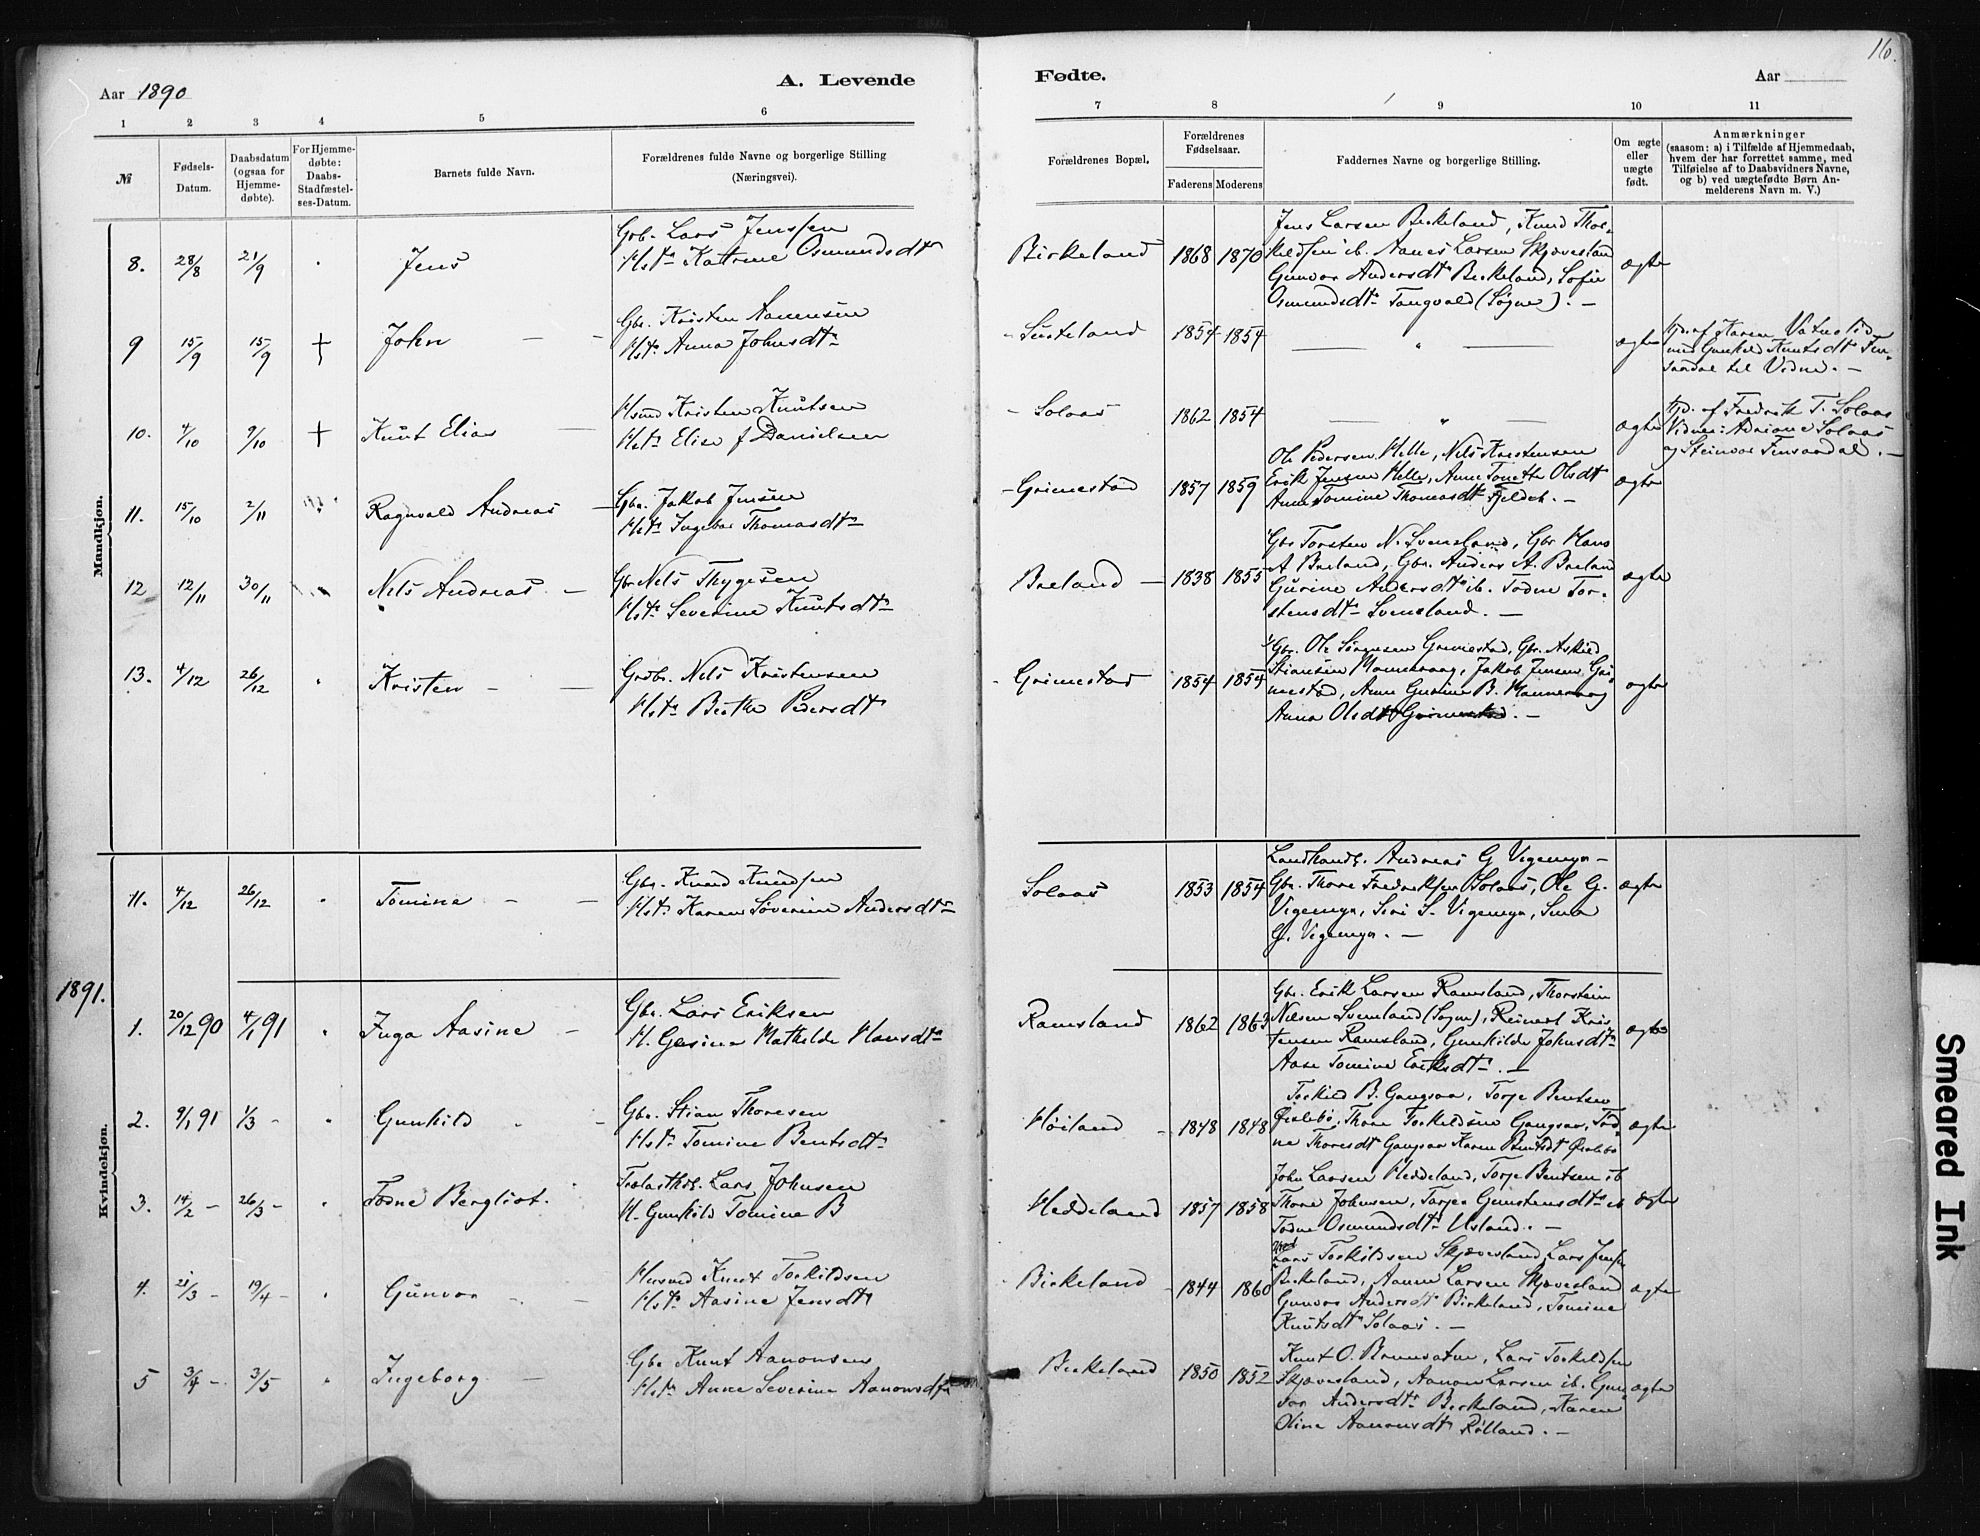 16.
Aar 1890
A. Levende
Fødte.
Aar
1 2 3 4 5 6 7 8 9 10 11
№
Fødsels-
Datum.
Daabsdatum
(ogsaa for
Hjemme-
døbte).
For Hjemme-
døbte:
Daabs-
Stadfæstel-
ses-Datum.
Barnets fulde Navn.
Forældrenes fulde Navne og borgerlige Stilling
(Næringsvei).
Forældrenes Bopæl.
Forældrenes
Fødselsaar.
Faderens Moderens
Faddernes Navne og borgerlige Stilling.
Om ægte
eller
uægte
født.
Anmærkninger
(saasom: a) i Tilfælde af Hjemmedaab,
hvem der har forrettet samme, med
Tilføielse af to Daabsvidners Navne,
og b) ved uægtefødte Børn An-
melderens Navn m. V.)
Mandkjøn.
8. 28/8 21/9 Jens
Gbr. Lars Jenssen
Hst. Katrine Osmundsdtr
Birkeland 1868 1870
Jens Larsen Birkeland, Knud Thor-
kildsen ib. Aanes Larsen Skjævesland
Gunvor Andersdtr Birkeland, Sofie
Osmundsdtr Tangvald (Søgne). —
ægte
9 15/9 15/9 † John —
Gbr. Kristen Aanensen
Hst. Anna Johnsdtr
1854 1854
— " —
ægte
hjd. af Karen
med Gunhild Knutsdtr
til Vidne. —
10. 4/10 9/10 † Knut Elias —
Husmd Kristen Knutsen
Hst. Elise f Danielsen
- Solaas 1862 1854
— " —
ægte
hjd. af Fredrik T. Solaas
Vidner: Adriane Solaas
og Steinvor Finsaadal. —
11. 15/10 2/11 Ragnvald Andreas —
Gbr. Jakob Jensen
Hst. Ingebor Thomasdtr
- Grimestad 1857 1859
Ole Pedersen Helle, Nils Kristensen
Erik Jensen Helle, Anne Tonette Olsdt
Anne Tomine Thomasdt Fjeldeb. —
ægte
12 12/11 30/11 Nils Andreas —
Gbr Nils Thygesen
Hst. Severine Knutsdtr
Breland — 1838 1855
Gbr Torsten N. Svensland, Gbr Hans
A Breland, Gbr. Anders A. Breland
Gurine Andersdtr ib. Todne Tor-
stensdtr Svensland. —
ægte
13. 4/12 26/12 Kristen — —
Grdbr. Nils Kristensen
Hst. Berthe Pedersdt
- Grimestad 1854 1854
Gbr. Ole Sørensen Grimestad, Gbr. Askild
Stiansen Mannevaag, Jakob Jensen Gri-
mestad, Anne Gurine B. Mannevaag
Anna Olsdtr Grimestad. —
ægte
11. 4/12 26/12 Tomine — —
Gbr. Knud Knudsen
Hst. Karen Søverine Andersdtr
Solaas 1853 1854
Landhandl. Andreas G Vigemyr —
Gbr. Thore Fredriksen Solaas, Ole G.
Vigemyr, Siri S. Vigemyr,
G. Vigemyr. —
ægte
1891.
Kvindekjøn.
1. 20/12 90 4/1 91 Inga Aasine —
Gbr. Lars Eriksen
H. Gesine Mathilde Hansdtr
Ramsland 1862 1863
Gbr. Erik Larsen Ramsland, Thorstein
Nilsen Svensland (Søgne), Reinert Kris-
tensen Ramsland, Gunhilde Johnsdtr
Aase Tomine Eriksdtr. —
ægte
2. 9/1 91 1/3 - Gunhild -
Gbr. Stian Thoresen
Hst. Tomine Bentsdtr
Høiland - 1848 1848
Torkild B. Gangsaa, Torje Bentsen
Øvlebø, Thore Torkildsen Gangsaa, Tod-
ne Thoresdt Gangsaa Karen Bentsdt Øvlebø
ægte
3. 14/2 - 26/3 - Todne Bergliot.
Lars Johnsen
H. Gunhild Tomine B
Heddeland 1857 1858
John Larsen Heddeland, Torje Bentsen ib
Thore Johnsen, Tarjer Gunstensdtr ib
Todne Osmundsdtr Usland. —
ægte
4. 21/3 - 19/4 - Gunvor - —
Husmd Knut Torkildsen
Hst. Aasine Jensdtr
Birkeland - 1844 1860
Lars Torkildsen Skjævesland Lars Jenssen
Birkeland, Aanen Larsen Skjævesland
Gunvor Andersdtr Birkeland, Tomine
Knutsdtr Solaas. —
ægte
5 3/4 - 3/5 Ingeborg —
Gbr Knut Aanonsen
Hst. Anne Severine Aanonsdtr
Birkeland 1850 1852
Knut O. Brunvatne, Lars Torkildsen
Skjævesland, Aanon Larsen ib. Gun-
vor Andersdtr Birkeland, Karen
Oline Aanonsdtr Røiland. —
ægte
Smeared Ink